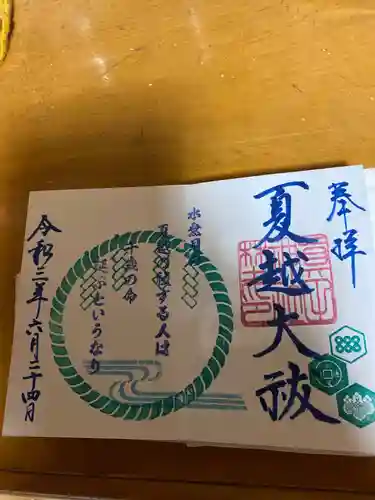 奉拝
夏越大祓
水無月の
夏越の祓する人は
千歳の命
延ぶというなり
令和二年六月二十四日